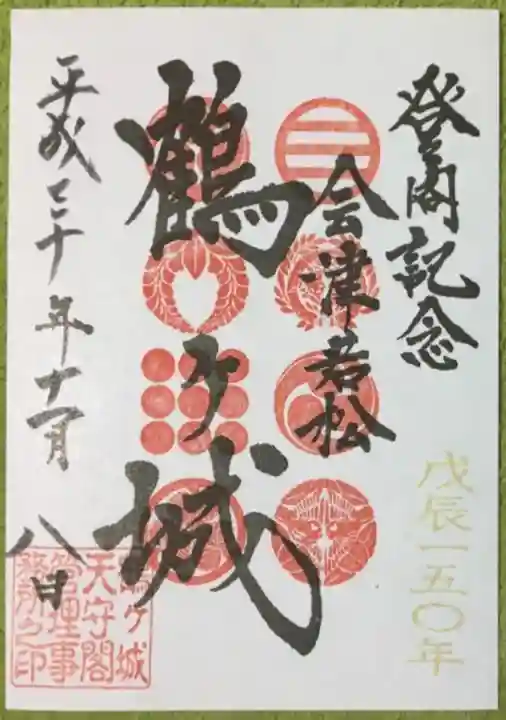 登閣記念
戊辰一五〇年
会津若松
鶴ヶ城
平成三十年十一月
八日
鶴ヶ城
天守閣
管理事
務所之印